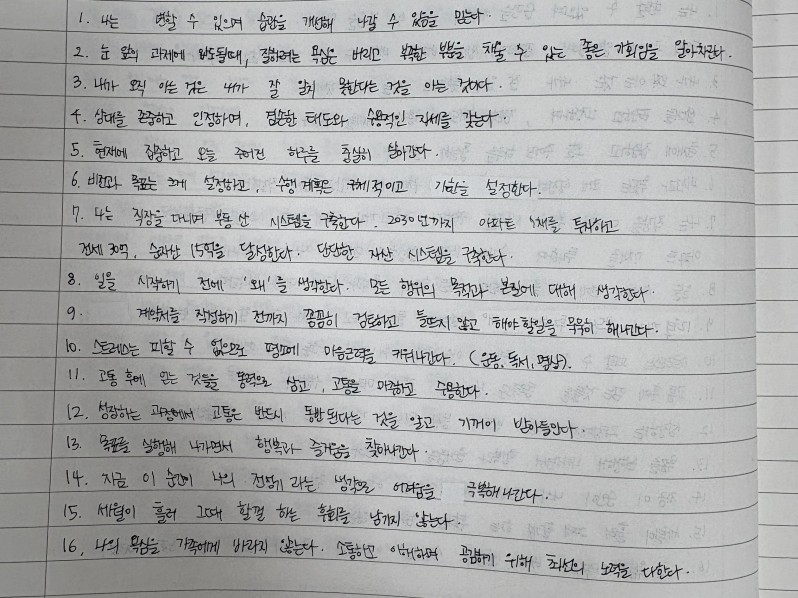 1. 나는 변할 수 있으며 습관을 개선해 나갈 수 있음을 믿는다.
2. 눈 앞의 과제에 압도될때, 잘하려는 욕심은 버리고 부족한 부분을 채울 수 있는 좋은 기회임을 알아차린다.
3. 내가 오직 아는 것은 내가 잘 알지 못한다는 것을 아는 것이다.
4. 상대를 존중하고 인정하며, 겸손한 태도와 수용적인 자세를 갖는다.
5. 현재에 집중하고 오늘 주어진 하루를 충실히 살아간다.
6. 비전과 목표는 크게 설정하고, 수행 계획은 구체적이고 기한을 설정한다.
7. 나는 직장을 다니며 부동산 시스템을 구축한다. 2030년까지 아파트 채를 투자하고
전세 30억, 순자산 15억을 달성한다. 단단한 자산 시스템을 구축한다.
8. 일을 시작하기 전에 '왜'를 생각한다. 모든 행위의 목적과 본질에 대해 생각한다.
9. 계약서를 작성하기 전까지 꼼꼼히 검토하고 들뜨지 않고 해야할일을 묵묵히 해나간다.
10. 스트레스는 피할 수 없으므로 평소에 마음근력을 키워나간다. (운동, 독서, 명상).
11. 고통 후에 얻는 것들을 동력으로 삼고, 고통을 마주하고 수용한다.
12. 성장하는 과정에서 고통은 반드시 동반된다는 것을 알고 기꺼이 받아들인다.
13. 목표를 실행해 나가면서 행복과 즐거움을 찾아나간다.
14. 지금 이 순간이 나의 전성기 라는 생각으로 어려움을 극복해나간다.
15. 세월이 흘러 그때 할걸 하는 후회를 남기지 않는다.
16, 나의 욕심을 가족에게 바라지 않는다. 소통하고 이해하며 공감하기 위해 최선의 노력을 다한다.